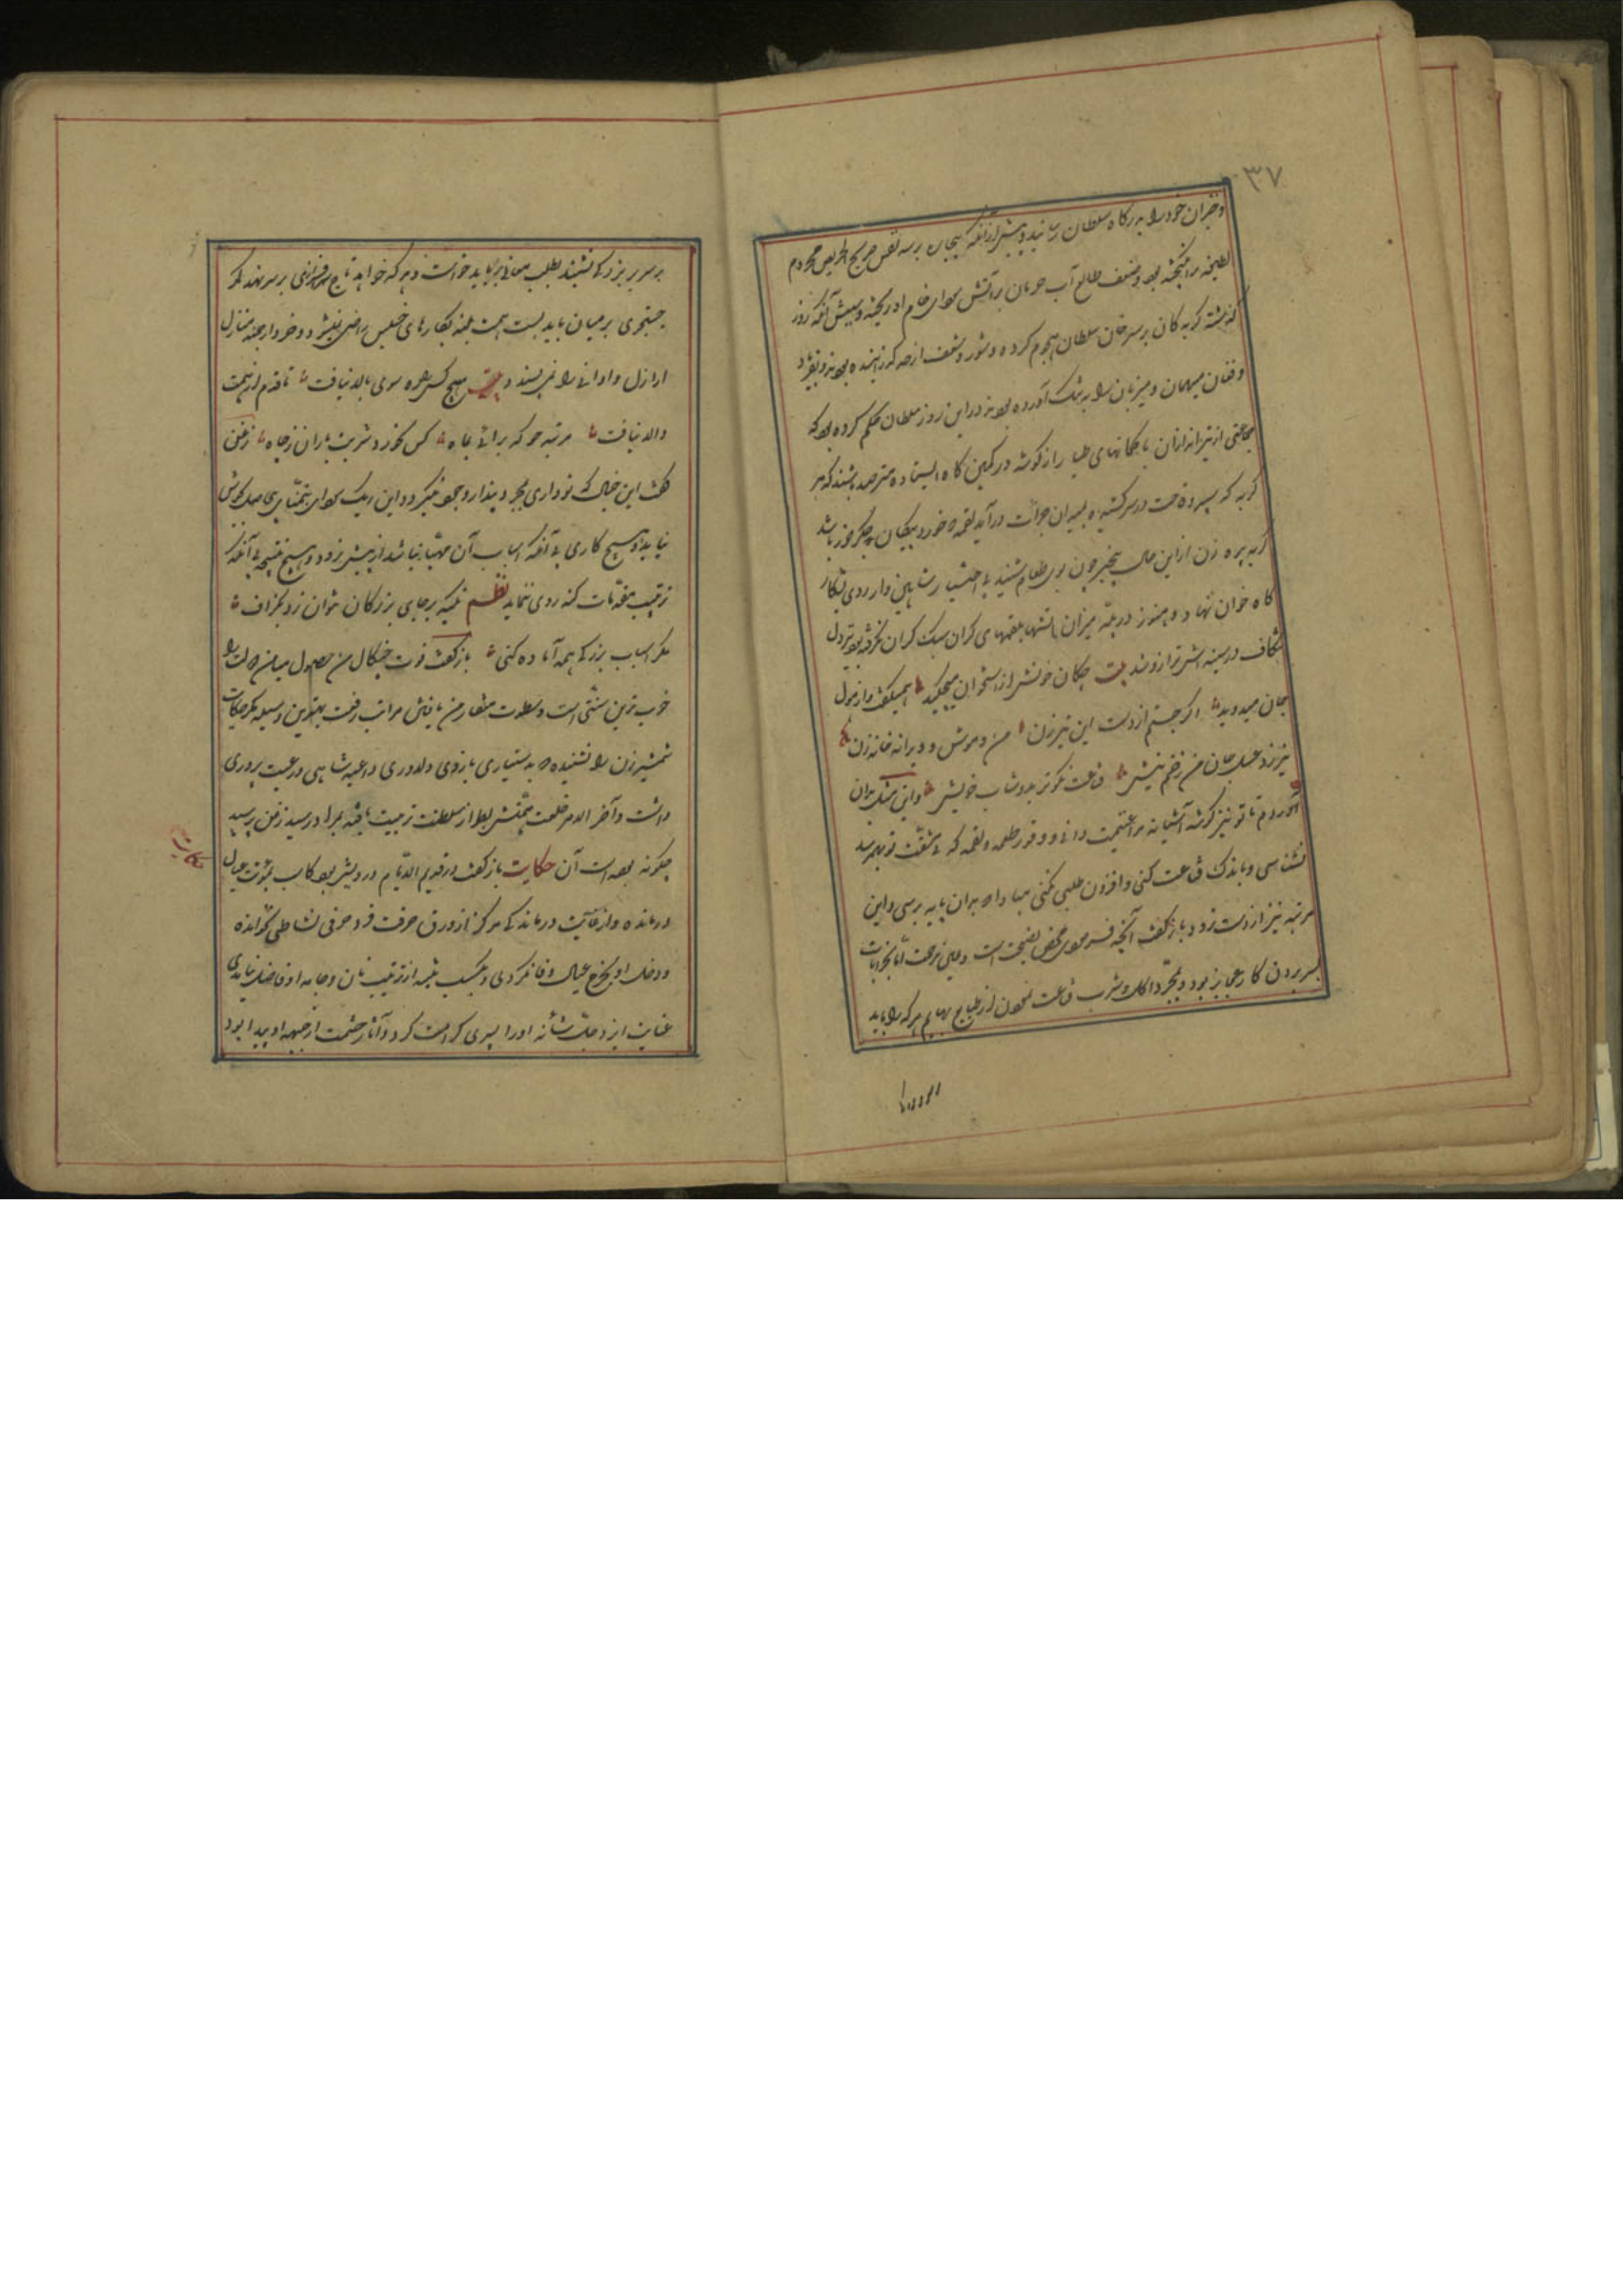 ۳۷
خود را به درگاه سلطان رسانید و پیشتر از آنکه برسد نقش الحریص محروم
انگیخته بود و ضعف طالع آب حرمان بر آتش سودای خام او ریخته و سببش آنکه روز
گذشته گربه کان بر سر خوان سلطان هجوم کرده و شور و شغف از حد گذرانیده بودند و بفریاد
و فغان میهمان و میزبان را به تنگ آورده بودند در این روز سلطان حکم کرده بود که
جماعتی از تیراندازان با کمانهای در کمین کاه ایستاده مترصد باشند که هر
گربه که سپر وقاحت در سر کشیده بمیدان جرأت درآید لقمه خورد پیکان جگر دوز باشد
گربه پیره زن از این حال بیخبر چون بوی طعام شنید بی اختیار شاهین وار روی بشکار
کاه خوان نهاد و هنوز در پله میزان اشتها بلقمهای گران سبک گران نگرفته بود که تیر دل
شکاف در سینه اش ترازو شد بیت چکان خونش از استخوان میچکید همیگفت و از هول
جان میدوید اگر جستم از دست این تیرزن من و موش و ویرانه خانه زن
نیرزد عسل جان من زخم نیش قناعت نکوتر بدوشاب خویش و این مثل بدان
آوردم تا تو نیز گوشه آشیانه مرا غنیمت دانی و قدر طعمه و لقمه که بی مشقت تو بهم رسد
نشناسی و باندک قناعت کنی و افزون طلبی نکنی مبادا که بدان پایه نرسی و این
مرتبه نیز از دست رود باز گفت آنچه فرمودی محض نصیحت است و عین مرحمت اما بجزئیات
بسر بردن کار عجایز بود و بمجرد اکل و شرب قناعت نمودن از طبایع بهایم هر که را باید
بر سریر بزرگی نشیند بطلب باید خواست و هر که خواهد تاج سرفرازی بر سر نهد کمر
جستجوی بر میان باید بست همت بلند بکارهای خسیس راضی نشود و خردارجمند منازل
اراذل و ادانی را نپسندد بیت هیچ کس ره سوی بالا نیافت تا قدم از همت
والا نیافت مرتبه جو که برآئی بماه کس نخورد شربت باران ز چاه زغن
گفت این خیال که تو داری بمجرد پندار وجود نگیرد و این دیک سودای بتمنای بیحاصل بجوش
نیاید و هیچ کاری بی آنکه اسباب آن مهیا نباشد از پیش نرود و هیچ نتیجه بی آنکه
ترتیب مقدمات کنند روی ننماید نظم تکیه بر جای بزرگان نتوان زد بگزاف
مگر اسباب بزرگی همه آماده کنی باز گفت قوت چنگال من حصول میامن دولت را
خوب ترین سنتی است و سطوت منقار من یافتن مراتب رفعت بهترین وسیله مگر حکایت
شمشیرزن را نشنیده که بدستیاری بازوی دلاوری داعیه شاهی و رعیت پروری
داشت و آخر الامر خلعت همتش بطراز سلطنت زینت یافته بمراد رسید زغن پرسید
چگونه بوده است آن حکایت باز گفت در قدیم الایام درویشی بود کاسب بمؤنت عیال
درمانده و از غایت درماندگی هرگز از ورق حرفت خود حرفی نشاطی نخوانده
و دخل او بخرج عیال وفا نکردی و بکسب پیشه از ترتیب نان و جامه او فاضل نیامدی
عنایت ایزد جل شأنه او را پسری کرامت کرد و آثار حشمت از جبهه او پیدا بود
حکایت